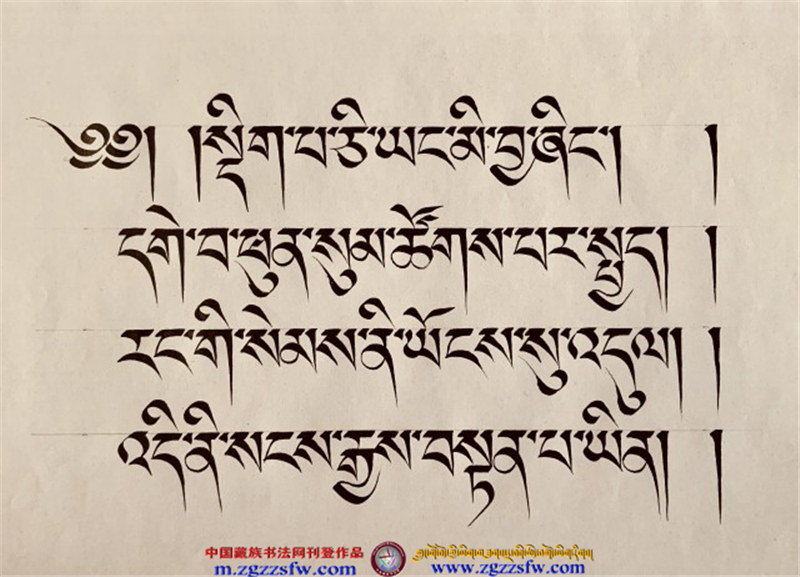 ༄༅། །སྡིག་པ་ཅི་ཡང་མི་བྱ་ཞིང་། །
དགེ་བ་ཕུན་སུམ་ཚོགས་པར་སྤྱད། །
རང་གི་སེམས་ནི་ཡོངས་སུ་འདུལ། །
འདི་ནི་སངས་རྒྱས་བསྟན་པ་ཡིན། །
中国藏族书法网刊登作品
m.zgzzsfw.com
www.zgzzsfw.com